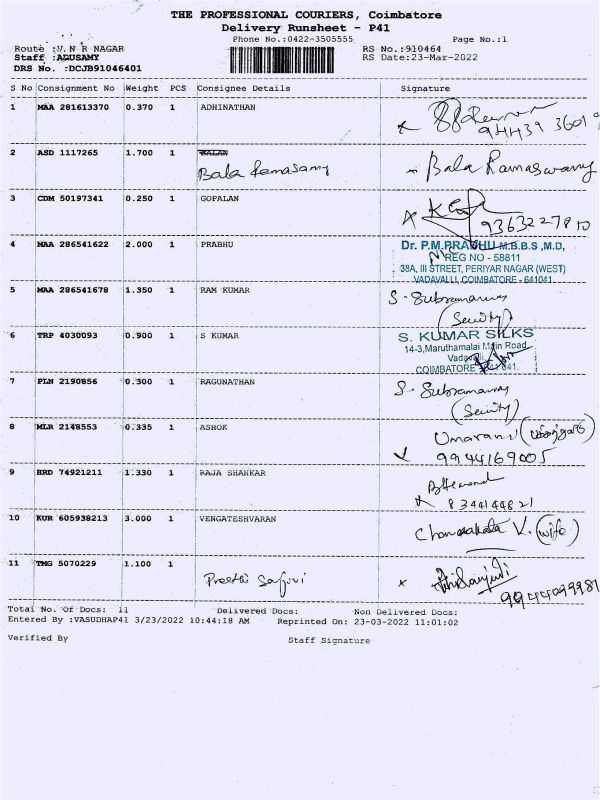 THE PROFESSIONAL COURIERS, Coimbatore
Delivery Runsheet - P41
Phone No.:0422-3505555 Page No.:1
Route :V.N R NAGAR RS No.:910464
Staff :AGUSAMY RS Date:23-Mar-2022
DRS No. :DCJB91046401
S No Consignment No Weight PCS Consignee Details Signature
1 MAA 281613370 0.370 1 ADHINATHAN
2 ASD 1117265 1.700 1 BALAN
Bala Ramasamy Bala Ramaswamy
3 CDM 50197341 0.250 1 GOPALAN
9363227810
4 MAA 286541622 2.000 1 PRABHU Dr. P.M.PRABHU M.B.B.S.,M.D,
REG NO - 58811
38A, III STREET, PERIYAR NAGAR (WEST)
VADAVALLI, COIMBATORE - 641041.
5 MAA 286541678 1.350 1 RAM KUMAR S. Subramaniam
(Security)
6 TRP 4030093 0.900 1 S KUMAR S. KUMAR SILKS
14-3,Maruthamalai Main Road,
Vadavalli,
COIMBATORE - 641 041.
7 PLN 2190856 0.300 1 RAGUNATHAN S. Subramaniam
(Security)
8 MLR 2148553 0.335 1 ASHOK Umarani
9944169005
9 HRD 74921211 1.330 1 RAJA SHANKAR
10 KUR 605938213 3.000 1 VENGATESHVARAN Chandrakala V. (wife)
11 TMG 5070229 1.100 1
Preethi Sanjivi
9944099981
Total No. Of Docs: 11 Delivered Docs: Non Delivered Docs:
Entered By :VASUDHAP41 3/23/2022 10:44:18 AM Reprinted On: 23-03-2022 11:01:02
Verified By Staff Signature